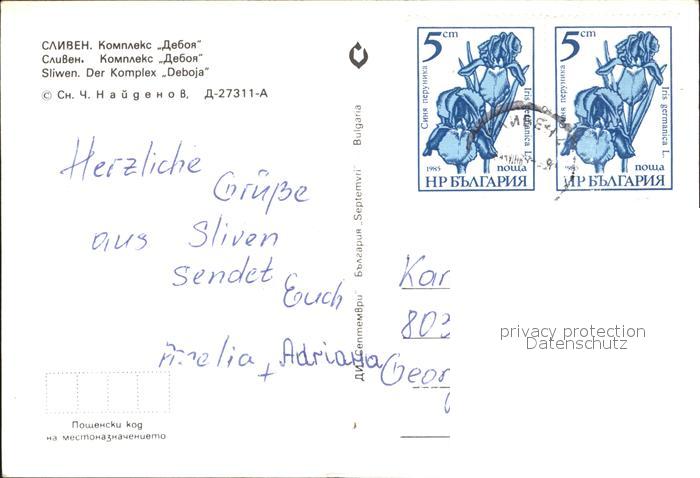 СЛИВЕН. Комплекс „Дебоя“
Сливен. Комплекс „Дебоя“
Sliwen. Der Komplex „Deboja“
© Сн. Ч. Найденов, Д-27311-А
Herzliche
Grüße
aus Sliven
sendet
Euch
+ Adriana
Пощенски код
на местоназначението
България „Septemvri“ Bulgaria
5 cm
Синя перуника
Iris germanica L.
1985
поща
НР БЪЛГАРИЯ
5 cm
Синя перуника
Iris germanica L.
1985
поща
НР БЪЛГАРИЯ
Kar
803
Geor
privacy protection
Datenschutz